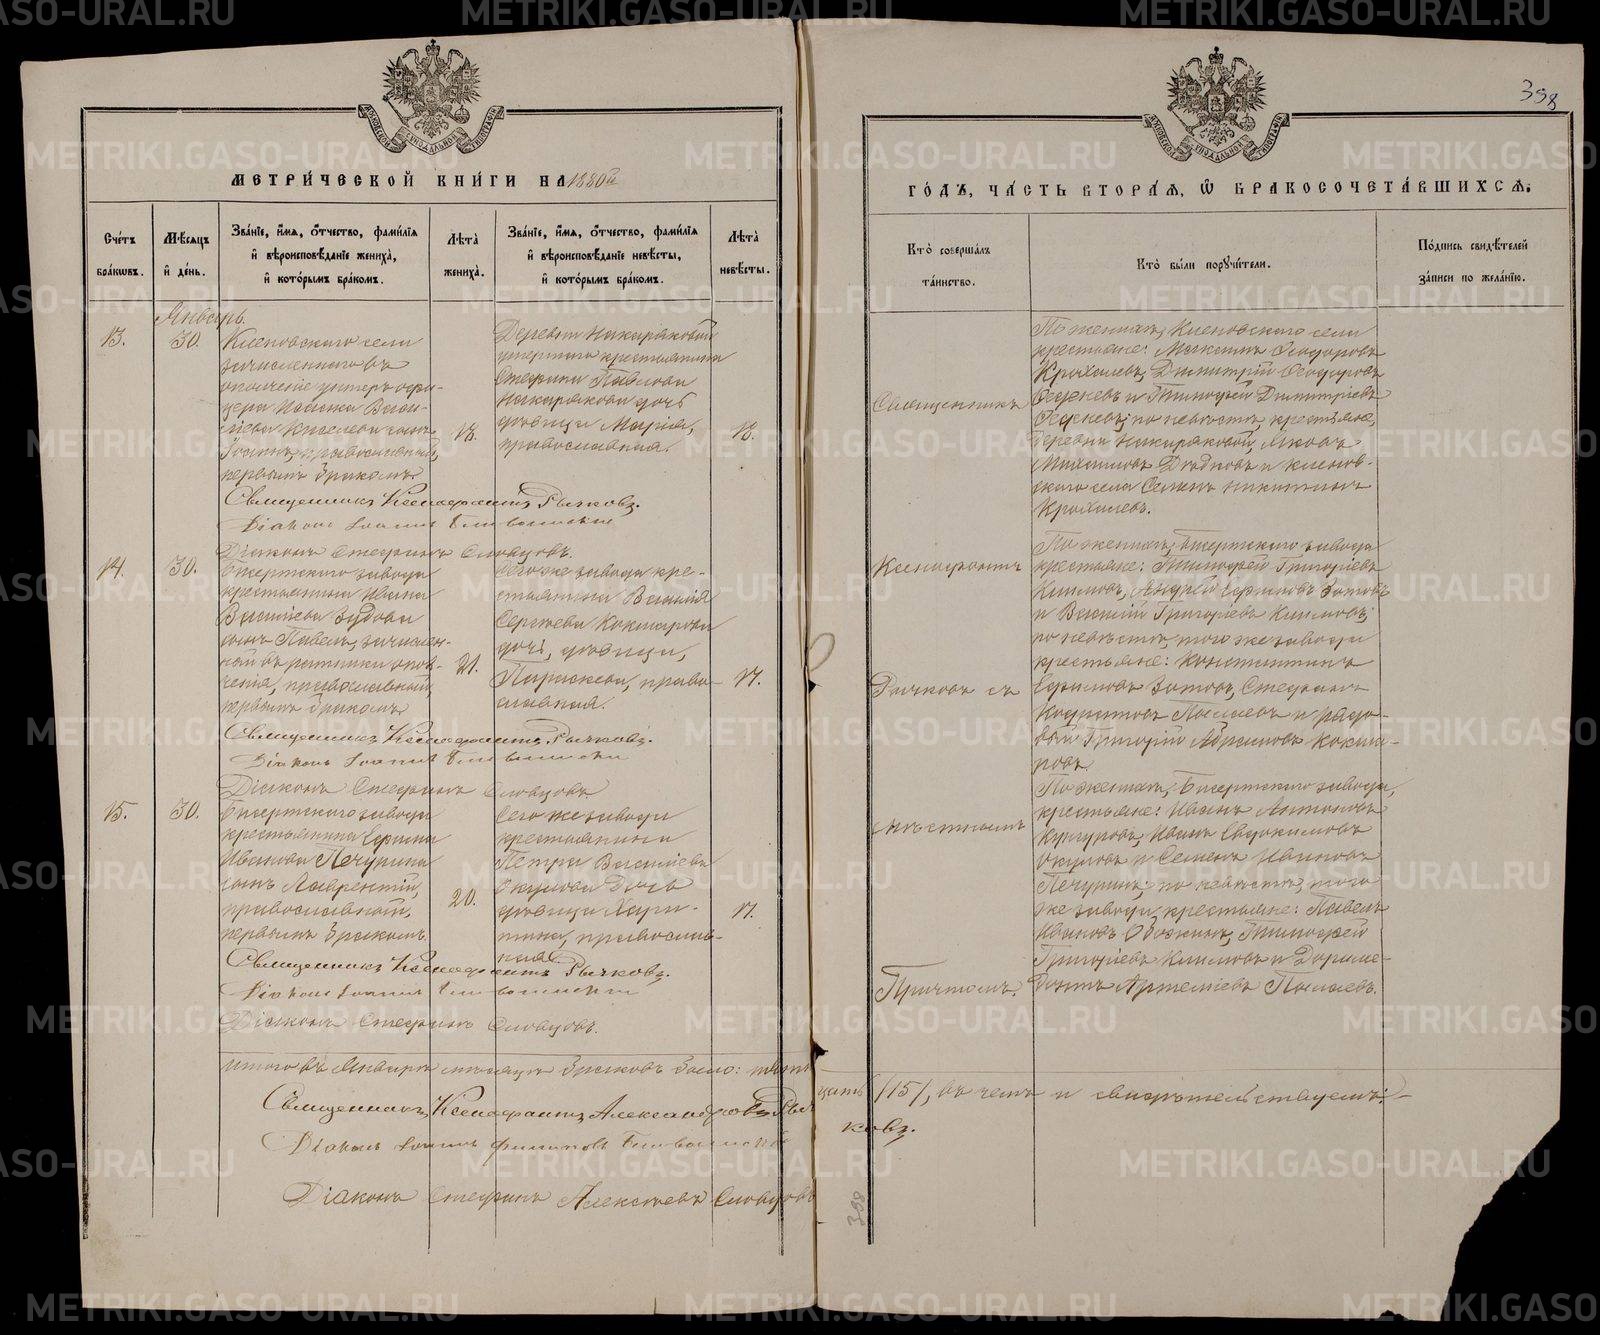 METRIKI.GASO-URAL.RU
398
МОСКОВСКОЙ СѴНОДАЛЬНОЙ ТИПОГРАФІИ
МЕТРИ́ЧЕСКОЙ КНИ́ГИ НА 1880й
ГО́ДЪ, ЧА́СТЬ ВТОРА́Я, Ѽ БРАКОСОЧЕТА́ВШИХСЯ.
Сче́тъ бра́кѡвъ.
Мѣ́сяцъ и҆ де́нь.
Зва́нїе, и҆́мя, ѻ҆́тчество, фами́лїя и҆ вѣроисповѣ́данїе жениха̀, и҆ кото́рымъ бра́комъ.
Лѣ́та жениха̀.
Зва́нїе, и҆́мя, ѻ҆́тчество, фами́лїя и҆ вѣроисповѣ́данїе невѣ́сты, и҆ кото́рымъ бра́комъ.
Лѣ́та невѣ́сты.
Кто̀ соверша́лъ та́инство.
Кто̀ бы́ли порꙋчи́тели.
По́дпись свидѣ́телей за́писи по жела́нїю.
Январь.
13.
30.
Кленовскаго села
зачисленнаго въ
ополченіе унтеръ-офи-
цера Васи-
ліева Киселева сынъ
Іоаннъ, православный,
первымъ бракомъ.
18.
Деревни Накаряковой
умершаго крестьянина
Стефана Павлова
Накарякова дочь
дѣвица Марія,
православная.
18.
По женихѣ, Кленовскаго села
крестьяне: Максимъ Ѳеодоровъ
Крохалевъ, Димитрій Ѳеодоровъ
и Тимоѳей Димитріевъ
по невѣстѣ, крестьяне,
деревни Накаряковой, Іаковъ
Михаиловъ Дядковъ и Кленов-
скаго села Семенъ Никитинъ
Крохалевъ.
Священникъ Ксенофонтъ Рычковъ.
Діаконъ Іоаннъ
Діаконъ Стефанъ Словцовъ.
14.
30.
Бисертскаго завода
крестьянина Ивана
Василіева Зудова
сынъ Павелъ, зачислен-
ный въ ратники опол-
ченія, православный,
первымъ бракомъ
21.
Сего же завода кре-
стьянина Василія
Сергѣева Кокшарова
дочь, дѣвица,
Параскева, право-
славная.
17.
По женихѣ, Бисертскаго завода
крестьяне: Тимоѳей Григоріевъ
Климовъ, Андрей Ефимовъ Зотовъ
и Василій Григоріевъ Климовъ;
по невѣстѣ, того же завода
крестьяне: Константинъ
Ефимовъ Зотовъ, Стефанъ
Кодратовъ Пылаевъ и рядо-
вый Григорій Абрамовъ Кокша-
ровъ.
Священникъ Ксенофонтъ Рычковъ.
Діаконъ Іоаннъ
Діаконъ Стефанъ Словцовъ.
15.
30.
Бисертскаго завода
крестьянина Ефима
Иванова Печурина
сынъ Лаврентій,
православный,
первымъ бракомъ.
20.
Сего же завода
крестьянина
Петра Василіева
Окулова дочь
дѣвица Хари-
тина, православ-
ная.
17.
По женихѣ, Бисертскаго завода,
крестьяне: Иванъ Антоновъ
Иванъ Евдокимовъ
Окуловъ и Семенъ Ивановъ
Печуринъ; по невѣстѣ, того
же завода крестьяне: Павелъ
Ивановъ Тимоѳей
Григоріевъ Климовъ и Дориме-
донтъ Артеміевъ Пылаевъ.
Священникъ Ксенофонтъ Рычковъ.
Діаконъ Іоаннъ
Діаконъ Стефанъ Словцовъ.
Священникъ
Ксенофонтъ
Рычковъ съ
мѣстнымъ
Причтомъ.
Итого въ Январѣ мѣсяцѣ браковъ было: пятнадцать /15/, въ чемъ и свидѣтельствуемъ:
Священникъ Ксенофонтъ Александровъ Рычковъ.
Діаконъ Іоаннъ Филиповъ
Діаконъ Стефанъ Алексѣевъ Словцовъ
398